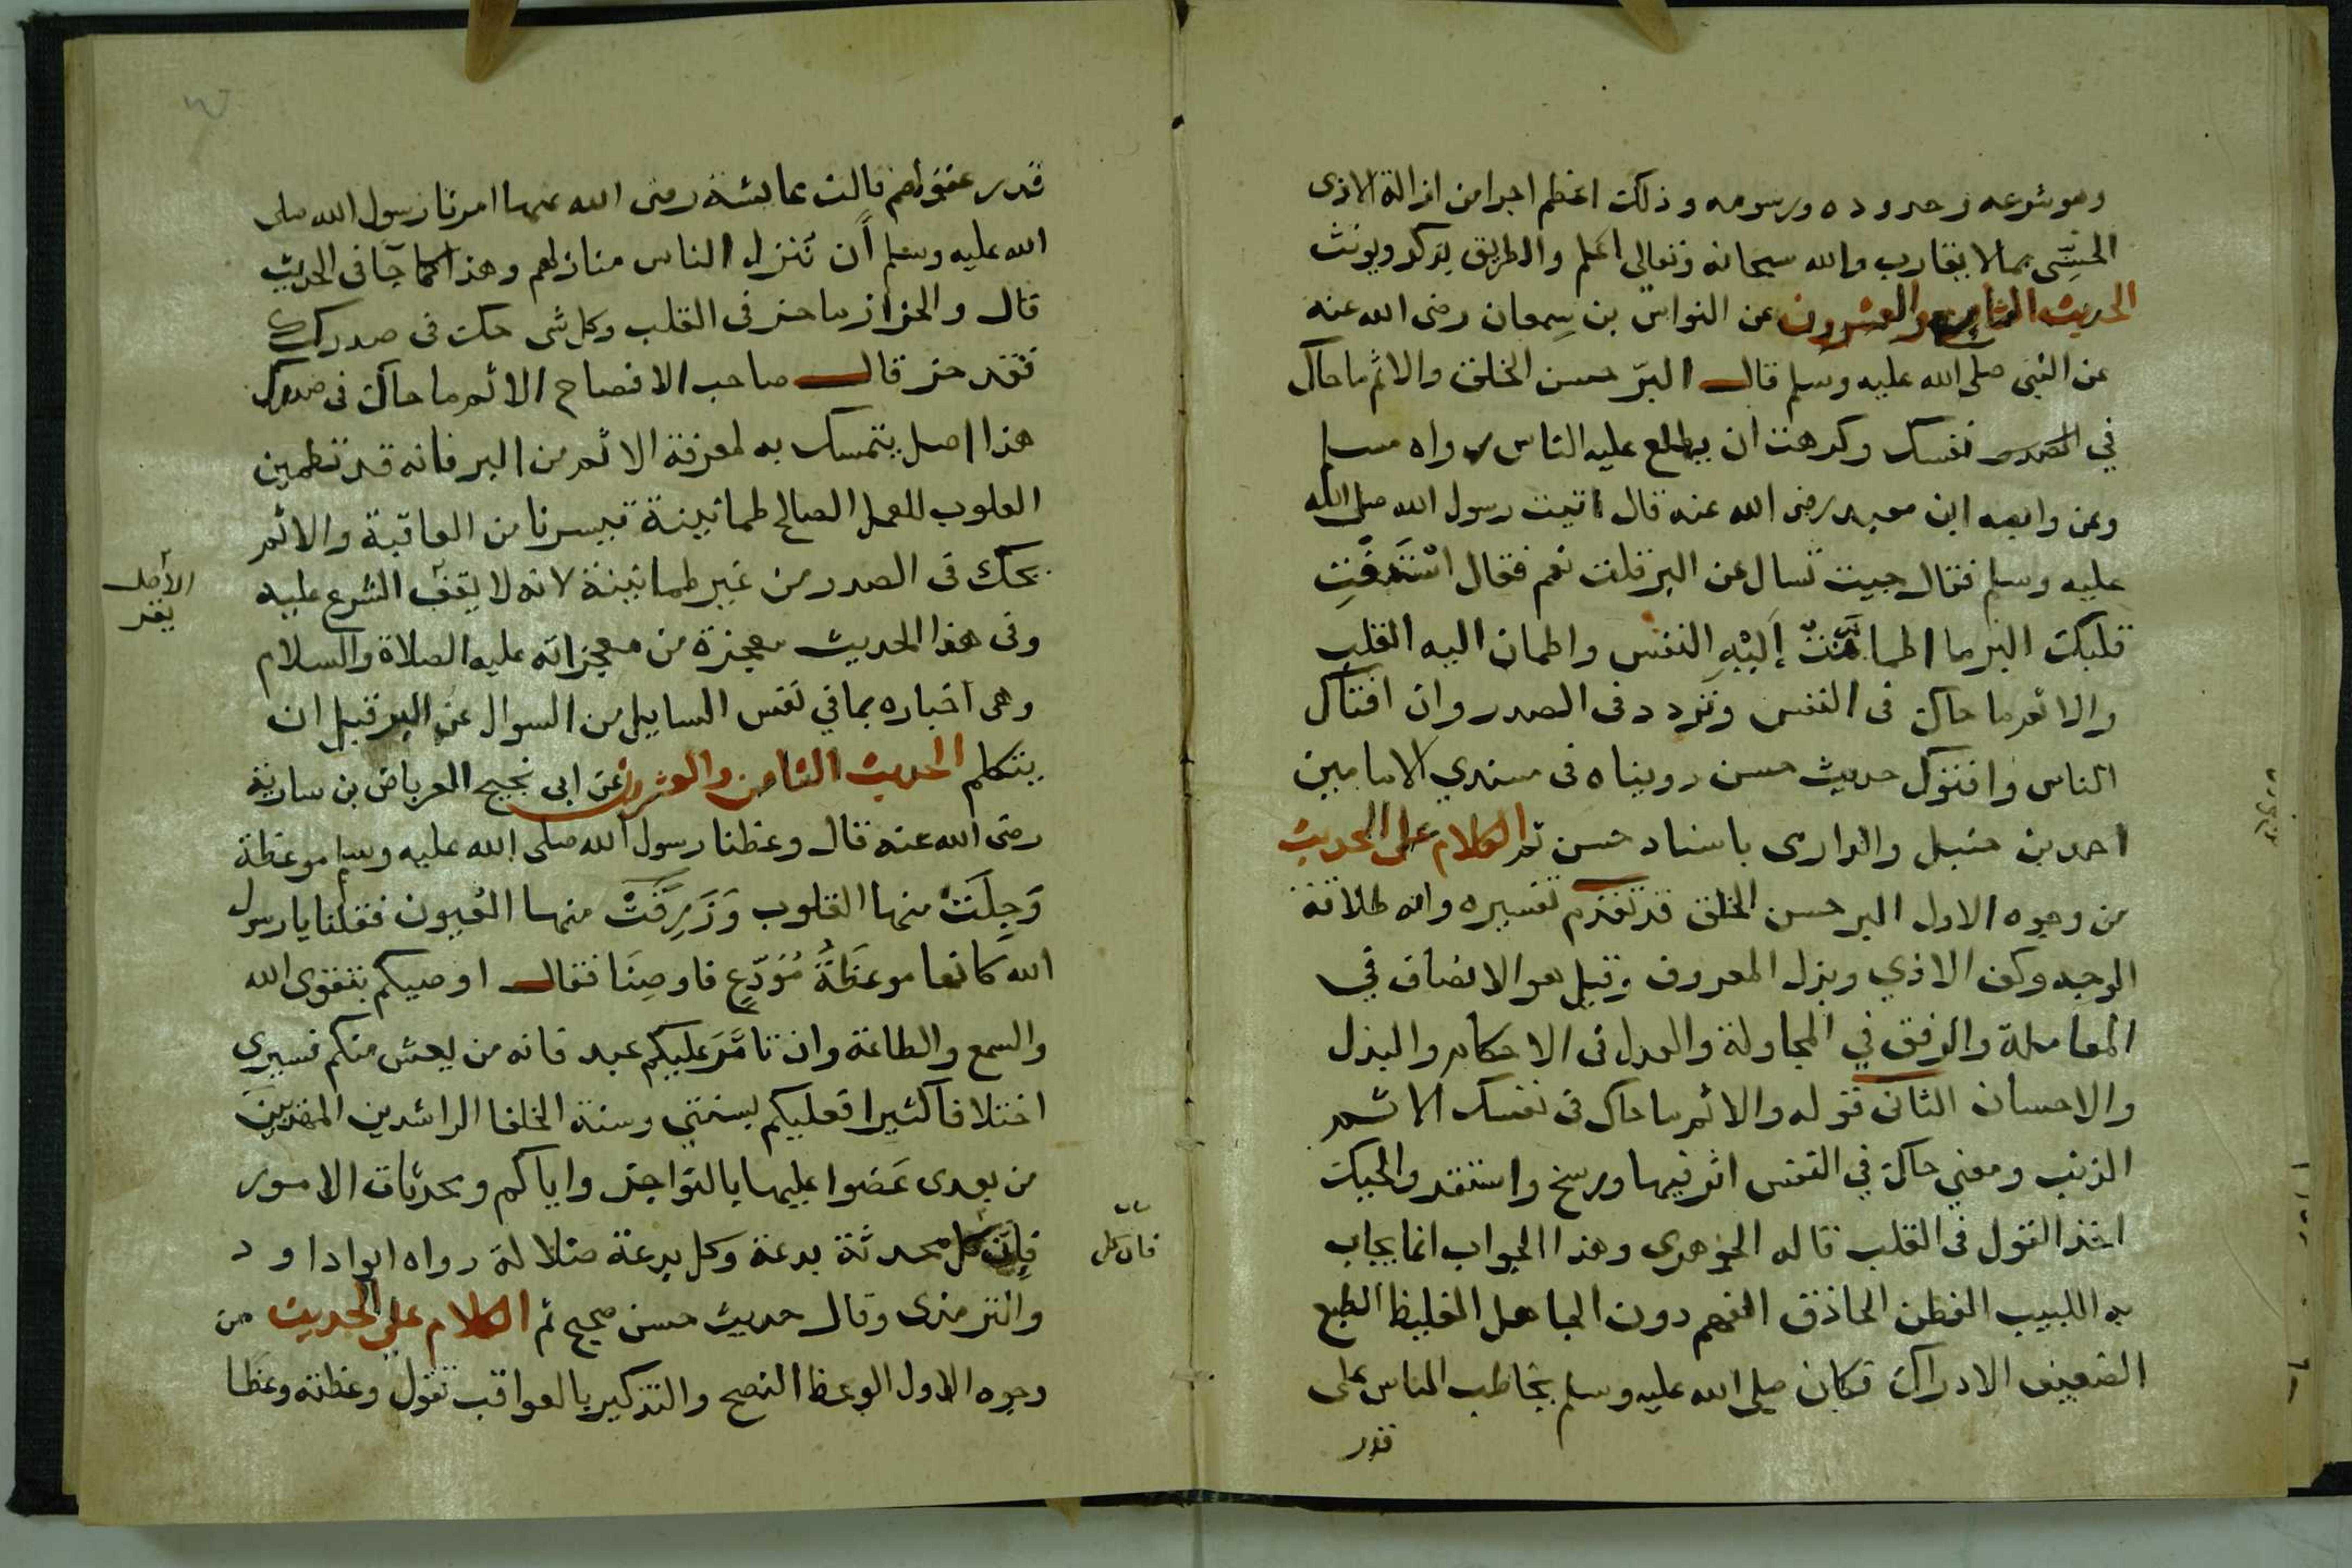 وهو شوعه وحدوده ورسومه وذلك اعظم اجرا من ازالة الاذى
الحسّى بما لا يقارب والله سبحانه وتعالى اعلم والطريق يذكر ويونث
الحديث السابع والعشرون عن النواس بن سِمعان رضى الله عنه
عن النبى صلى الله عليه وسلم قال البرّ حسن الخلق والاثم ما حاك
في نفسك وكرهت ان يطلع عليه الناس رواه مسلم
وعن وابصه ابن معبد رضى الله عنه قال اتيت رسول الله صلى الله
عليه وسلم فقال جيت تسال عن البر قلت نعم فقال اسْتَفْتِ
قلبك البر ما اطمانّتْ إليْهِ النفس واطمان اليه القلب
والاثم ما حاك فى النفس وتردد فى الصدر وان افتاك
الناس وافتوك حديث حسن رويناه فى مسندي الامامين
احمد بن حنبل والدارمى باسناد حسن ثم الكلام على الحديث
من وجوه الاول البر حسن الخلق قد تقدم تفسيره وانه طلاقة
الوجه وكف الاذي وبذل المعروف وقيل هو الانصاف في
المعاملة والرفق في المجاولة والعدل فى الاحكام والبذل
والاحسان الثانى قوله والاثم ما حاك فى نفسك الاثم
الذنب ومعني حاك في النفس اثر فيها ورسخ واستقر والحيك
اخذ القول فى القلب قاله الجوهرى وهذا الجواب انما يجاب
به اللبيب الفطن الحاذق الفهم دون الجاهل الغليظ الطبع
الضعيف الادراك فكان صلى الله عليه وسلم يخاطب الناس على
قدر
قدر عقولهم قالت عايشة رضى الله عنها امرنا رسول الله صلى
الله عليه وسلم أن نَنزل الناس منازلهم وهذا كما جآ فى الحديث
قال والحزاز ما حز فى القلب وكل شى حك فى صدرك
فقد حز قال صاحب الافصاح الاثم ما حاك فى صدرك
هذا اصل يتمسك به لمعرفة الاثم من البر فانه قد تطمين
القلوب للعمل الصالح طمانينة تبسرنا من العاقبة والاثم
يحك فى الصدر من غير طمانينة لانه لا يقف الشرع عليه
الأصل
يقر
وفى هذا الحديث معجزة من معجزاته عليه الصلاة والسلام
وهى اخباره بما في نفس السايل من السوال عن البر قبل ان
يتكلم الحديث الثامن والعشرون عن ابى نجيح العرباض بن سارية
رضى الله عنه قال وعظنا رسول الله صلى الله عليه وسلم موعظة
وَجِلَتْ منها القلوب وَذَرِفَتْ منها العُيون فقلنا يا رسول
الله كانها موعظَةُ مُوَدّعٍ فاوصِنَا فقال اوصيكم بتقوى الله
والسمع والطاعة وان تامَّرَ عليكم عبد فانه من يعش منكم فسيرى
اختلافا كثيرا فعليكم بسنتي وسنة الخلفا الراشدين المهديينَ
من بعدى عَضوا عليها بالنواجذ واياكم ومحدثات الامور
فإن كل محدثة بدعة وكل بدعة ضلالة رواه ابوا داود
بيان
فان كل
والترمذى وقال حديث حسن صحيح ثم الكلام على الحديث من
وجوه الاول الوعظ النصح والتذكير بالعواقب تقول وعظته وعظا